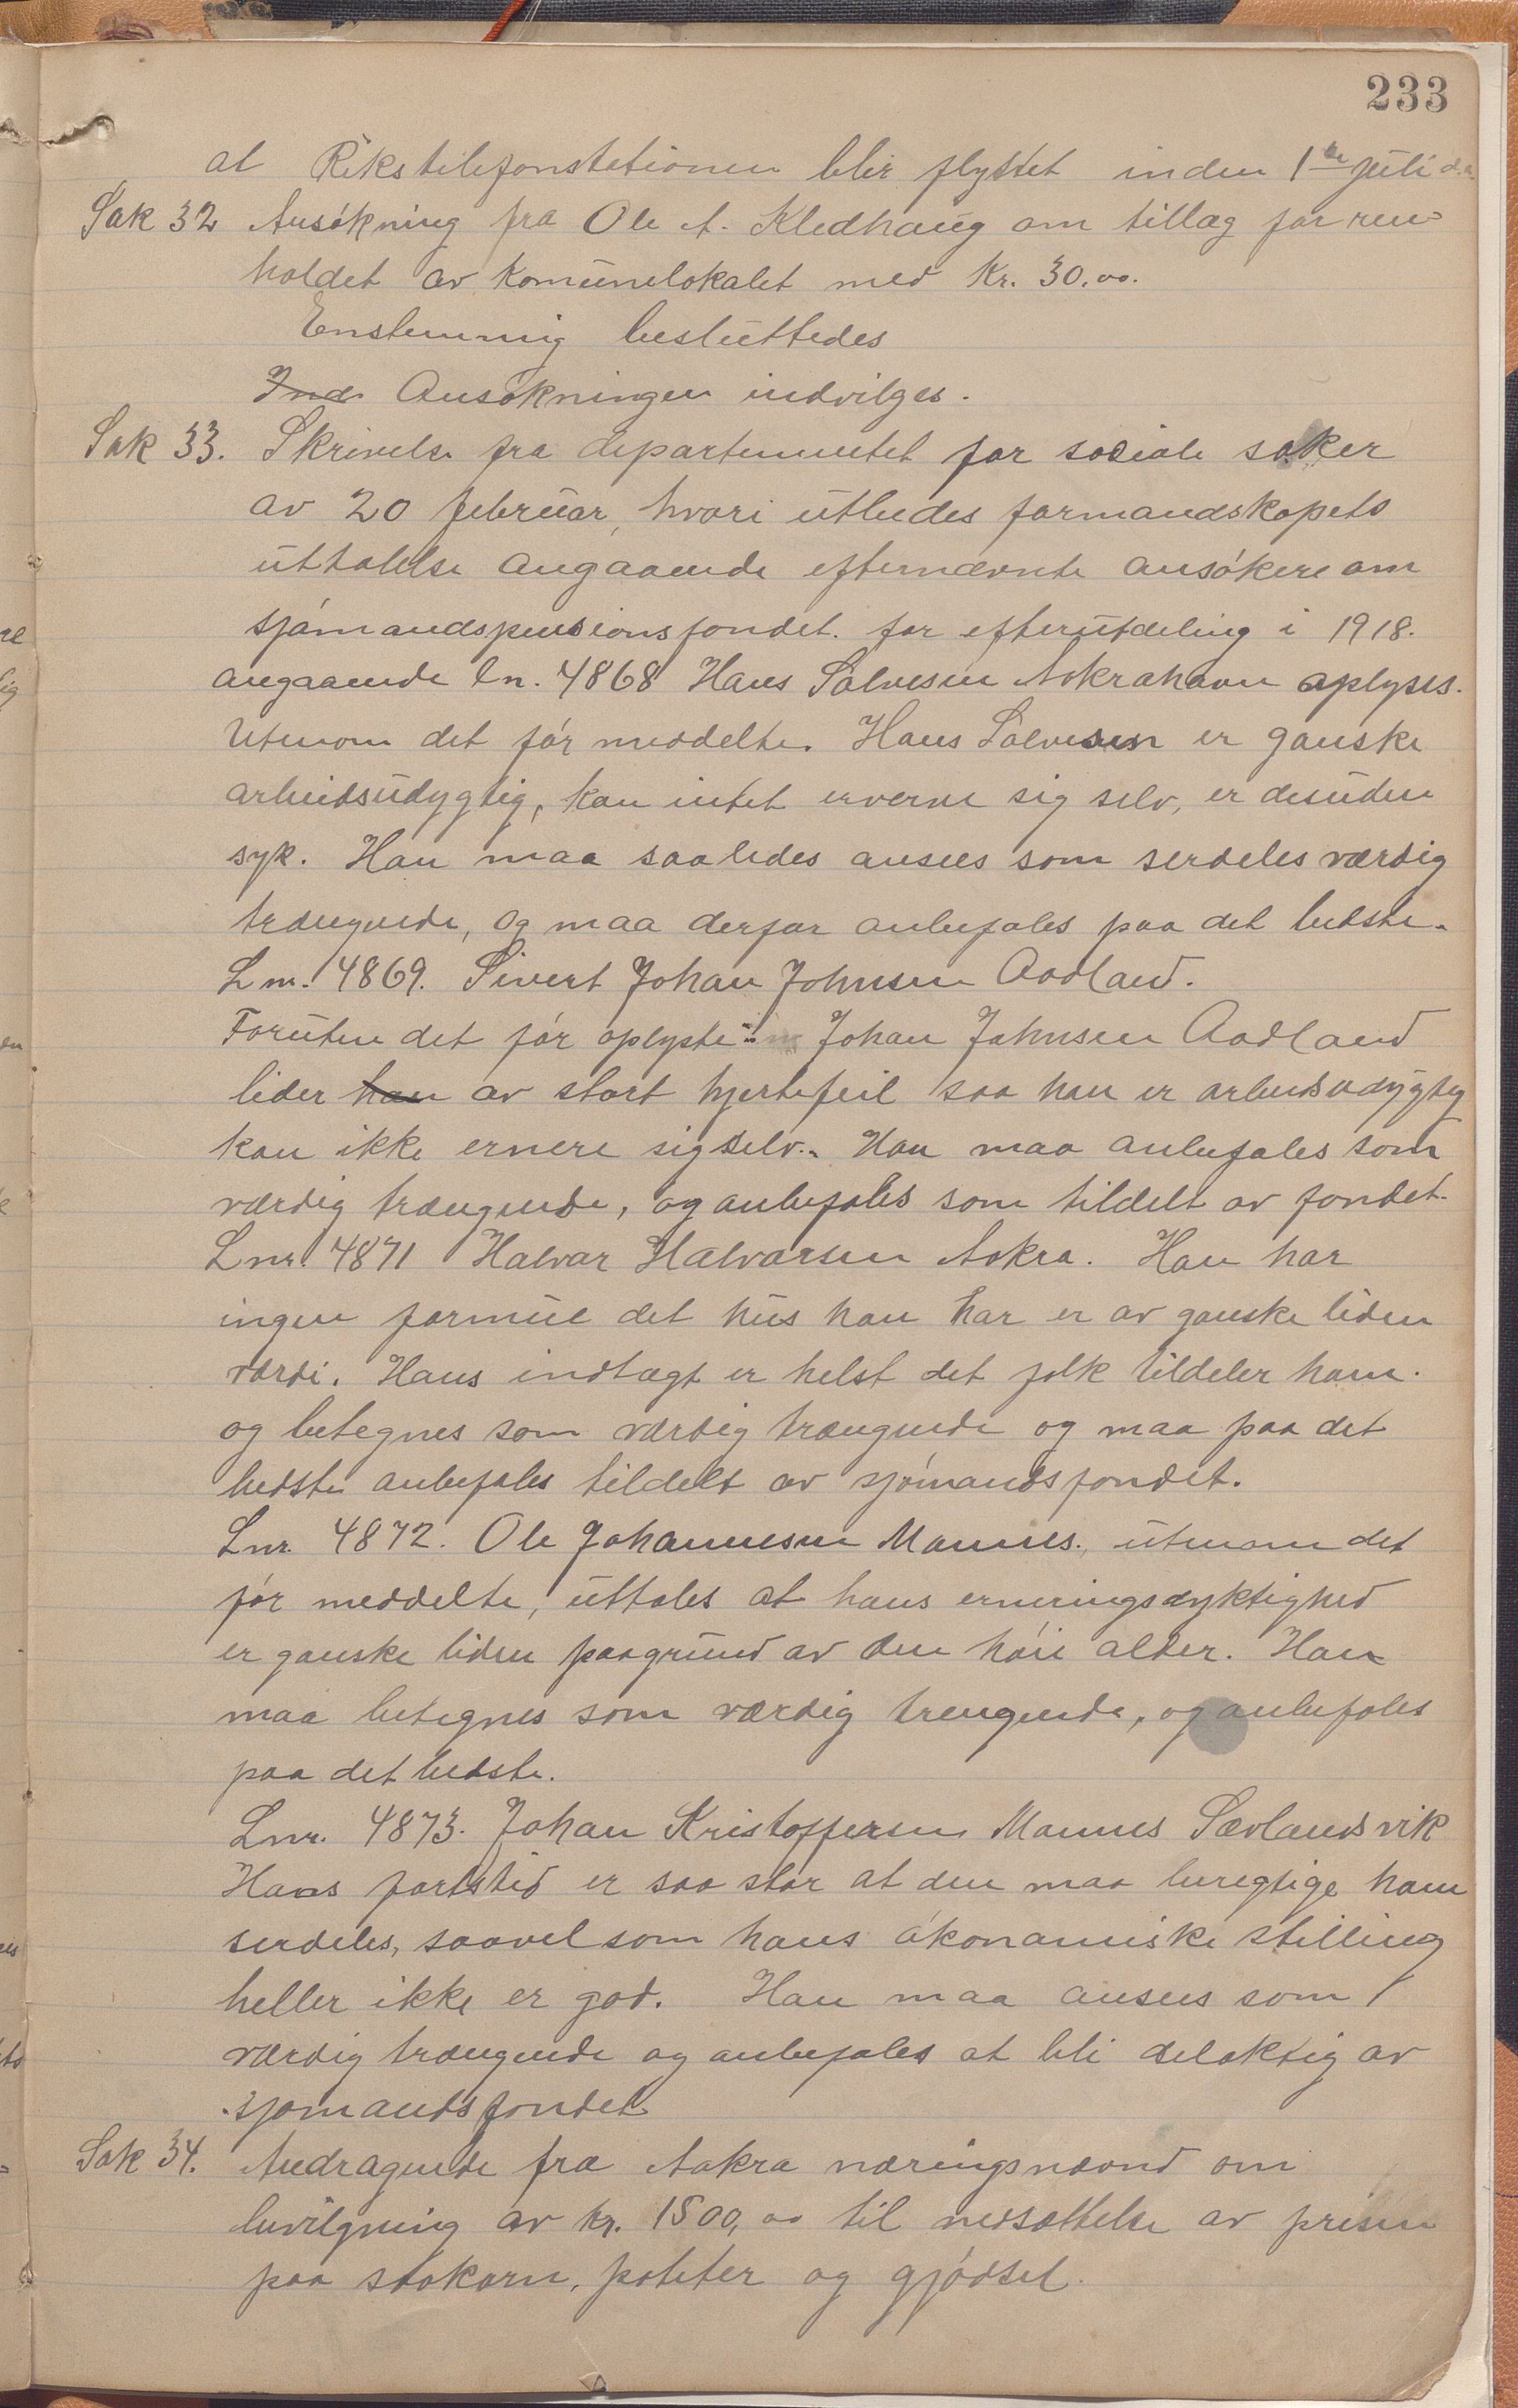 233
at Rikstelefonstationen blir flyttet inden 1ste juli d.a.
Sak 32 Ansökning fra Ole A. Kledhaug om tillæg for ren-
holdet av komunelokalet med Kr. 30.00.
Enstemmig besluttedes
Ind Ansökningen indvilges.
Sak 33. Skrivelse fra departementet for sociale saker
av 20 februar, hvori utbedes formandskapets
uttalelse angaaende efternævnte ansökere om
sjömandspensionsfondet. for efterutdeling i 1918.
angaaende ln. 4868 Hans Salvesen Aakrahavn oplyses.
Utenom det för meddelte. Hans Salvesen er ganske
arbeidsudygtig, kan intet erverve sig selv, er desuden
syk. Han maa saaledes ansees som serdeles værdig
trængende, og maa derfor anbefales paa det bedste.
Lnr. 4869. Sivert Johan Johnsen Aadland.
Foruten det för oplyste Johan Johnsen Aadland
lider han av stort hjertefeil saa han er arbeidsudygtig
kan ikke ernere sig selv. Han maa anbefales som
værdig trængende, og anbefales som tildelt av fondet.
Lnr. 4871 Halvar Halvarsen Aakra. Han har
ingen formue det hus han har er av ganske liden
værdi. Hans indtægt er helst det folk tildeler ham.
og betegnes som værdig trængende og maa paa det
bedste anbefales tildelt av sjömandsfondet.
Lnr. 4872. Ole Johannesen Mannes., utenom det
för meddelte, uttales at hans erneringsdyktighed
er ganske liden paagrund av den höie alder. Han
maa betegnes som værdig trengende, og anbefales
paa det bedste.
Lnr. 4873. Johan Kristoffersen Mannes Sævlandsvik
Hans fartstid er saa stor at den maa beregtige ham
serdeles, saavel som hans ökonomiske stilling
heller ikke er god. Han maa ansees som
værdig trængende og anbefales at bli delaktig av
sjömandsfondet
Sak 34. Andragende fra Aakra næringsnævnd om
bevilgning av kr. 1500,00 til nedsættelse av prisen
paa saakorn, poteter og gjödsel.